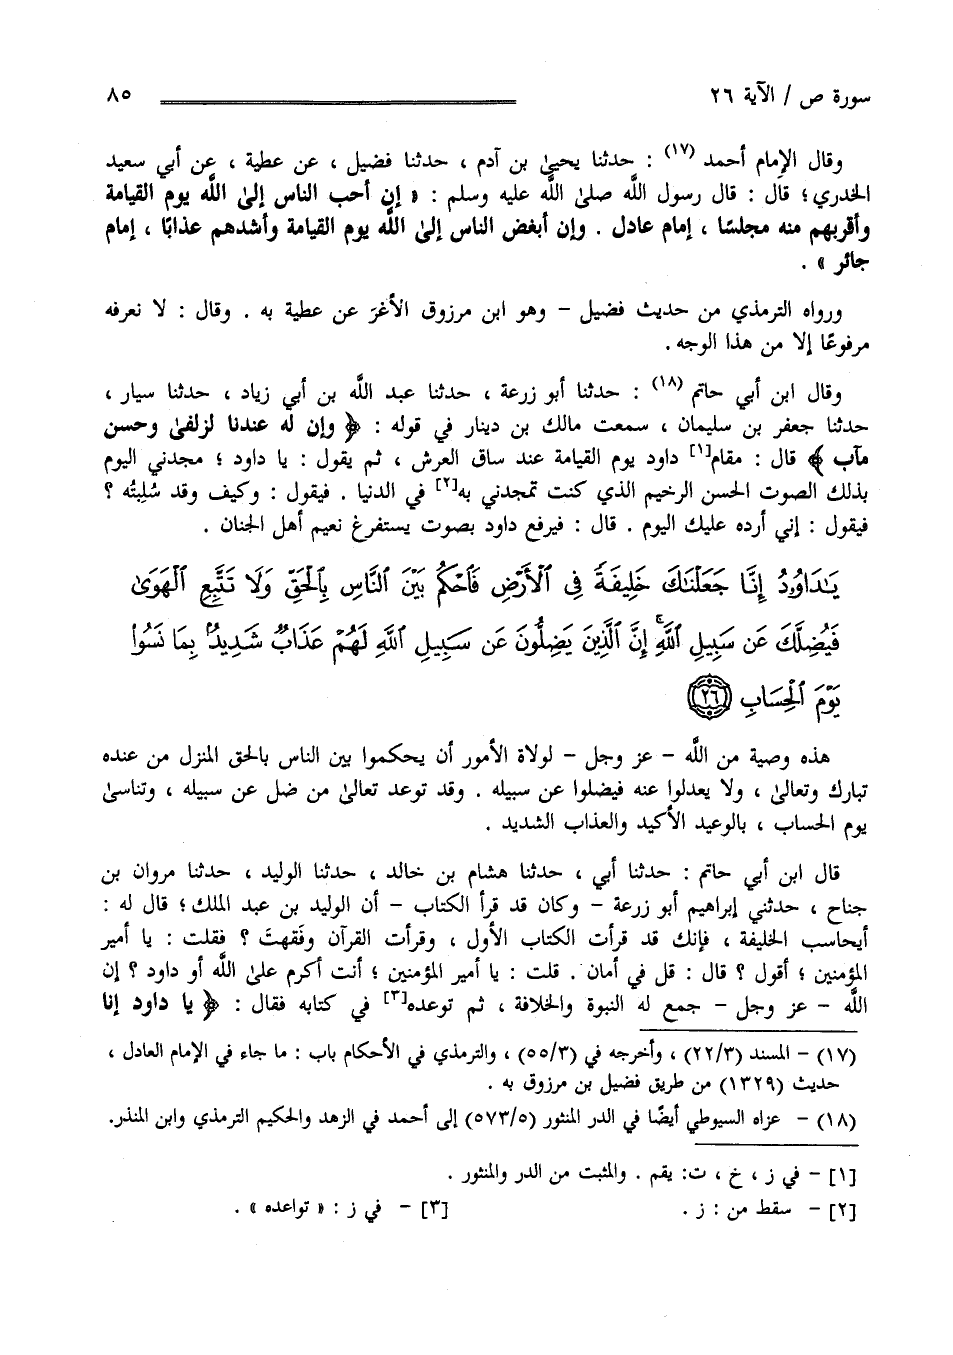 سورة ص / الآية ٢٦ ٨٥
وقال الإمام أحمد (١٧) : حدثنا يحيىٰ بن آدم ، حدثنا فضيل ، عن عطية ، عن أبي سعيد
الخدري؛ قال : قال رسول اللَّه صلىٰ اللَّه عليه وسلم : « إن أحب الناس إلىٰ اللَّه يوم القيامة
وأقربهم منه مجلسًا ، إمام عادل . وإن أبغض الناس إلىٰ اللَّه يوم القيامة وأشدهم عذابًا ، إمام
جائر » .
ورواه الترمذي من حديث فضيل – وهو ابن مرزوق الأغرّ عن عطية به . وقال : لا نعرفه
مرفوعًا إلا من هذا الوجه .
وقال ابن أبي حاتم (١٨) : حدثنا أبو زرعة ، حدثنا عبد اللَّه بن أبي زياد ، حدثنا سيار ،
حدثنا جعفر بن سليمان ، سمعت مالك بن دينار في قوله : ﴿ وإن له عندنا لزلفىٰ وحسن
مآب ﴾ قال : مقام[١] داود يوم القيامة عند ساق العرش ، ثم يقول : يا داود ؛ مجدني اليوم
بذلك الصوت الحسن الرخيم الذي كنت تمجدني به[٢] في الدنيا . فيقول : وكيف وقد سُلِبتُه ؟
فيقول : إني أرده عليك اليوم . قال : فيرفع داود بصوت يستفرغ نعيم أهل الجنان .
يَٰدَاوُۥدُ إِنَّا جَعَلۡنَٰكَ خَلِيفَةٗ فِي ٱلۡأَرۡضِ فَٱحۡكُم بَيۡنَ ٱلنَّاسِ بِٱلۡحَقِّ وَلَا تَتَّبِعِ ٱلۡهَوَىٰ
فَيُضِلَّكَ عَن سَبِيلِ ٱللَّهِۚ إِنَّ ٱلَّذِينَ يَضِلُّونَ عَن سَبِيلِ ٱللَّهِ لَهُمۡ عَذَابٞ شَدِيدُۢ بِمَا نَسُواْ
يَوۡمَ ٱلۡحِسَابِ ٢٦
هذه وصية من اللَّه – عز وجل – لولاة الأمور أن يحكموا بين الناس بالحق المنزل من عنده
تبارك وتعالىٰ ، ولا يعدلوا عنه فيضلوا عن سبيله . وقد توعد تعالىٰ من ضل عن سبيله ، وتناسىٰ
يوم الحساب ، بالوعيد الأكيد والعذاب الشديد .
قال ابن أبي حاتم : حدثنا أبي ، حدثنا هشام بن خالد ، حدثنا الوليد ، حدثنا مروان بن
جناح ، حدثني إبراهيم أبو زرعة – وكان قد قرأ الكتاب – أن الوليد بن عبد الملك ؛ قال له :
أيحاسب الخليفة ، فإنك قد قرأت الكتاب الأول ، وقرأت القرآن وفَقهتَ ؟ فقلت : يا أمير
المؤمنين ؛ أقول ؟ قال : قل في أمان . قلت : يا أمير المؤمنين ؛ أنت أكرم علىٰ اللَّه أو داود ؟ إن
اللَّه – عز وجل – جمع له النبوة والخلافة ، ثم توعده[٣] في كتابه فقال : ﴿ يا داود إنا
(١٧) – المسند (٢٢/٣) ، وأخرجه في (٥٥/٣) ، والترمذي في الأحكام باب : ما جاء في الإمام العادل ،
حديث (١٣٢٩) من طريق فضيل بن مرزوق به .
(١٨) – عزاه السيوطي أيضًا في الدر المنثور (٥٧٣/٥) إلى أحمد في الزهد والحكيم الترمذي وابن المنذر.
[١] – في ز ، خ ، ت: يقم . والمثبت من الدر والمنثور .
[٢] – سقط من : ز . [٣] – في ز : « تواعده » .